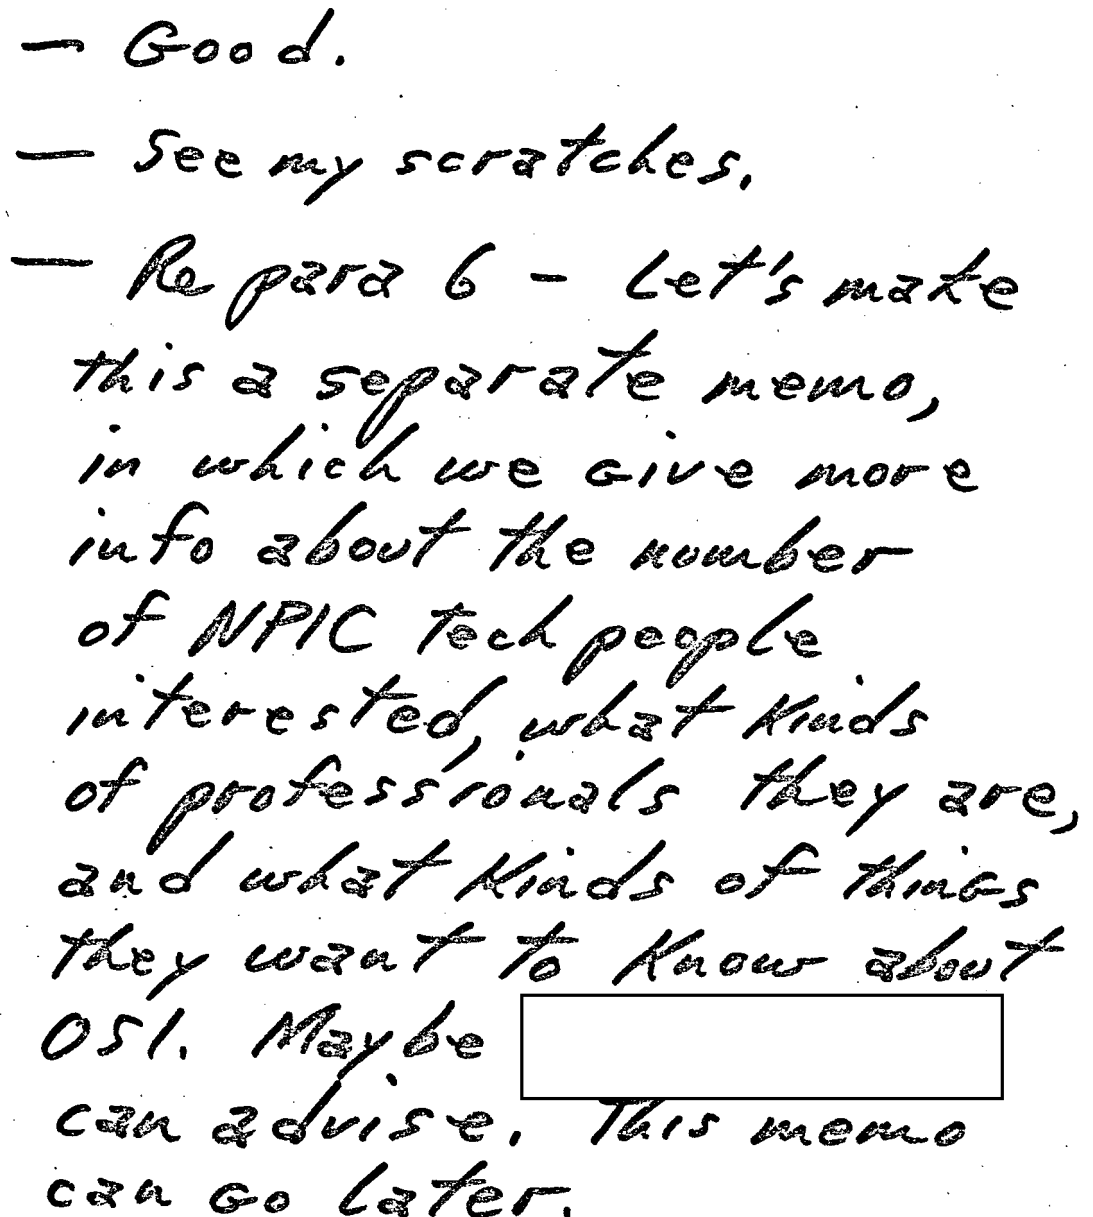 — Good.
— See my scratches.
— Re para 6 - Let's make
this a separate memo,
in which we give more
info about the number
of NPIC tech people
interested, what kinds
of professionals they are,
and what kinds of things
they want to know about
OSI. Maybe
can advise. This memo
can go later.